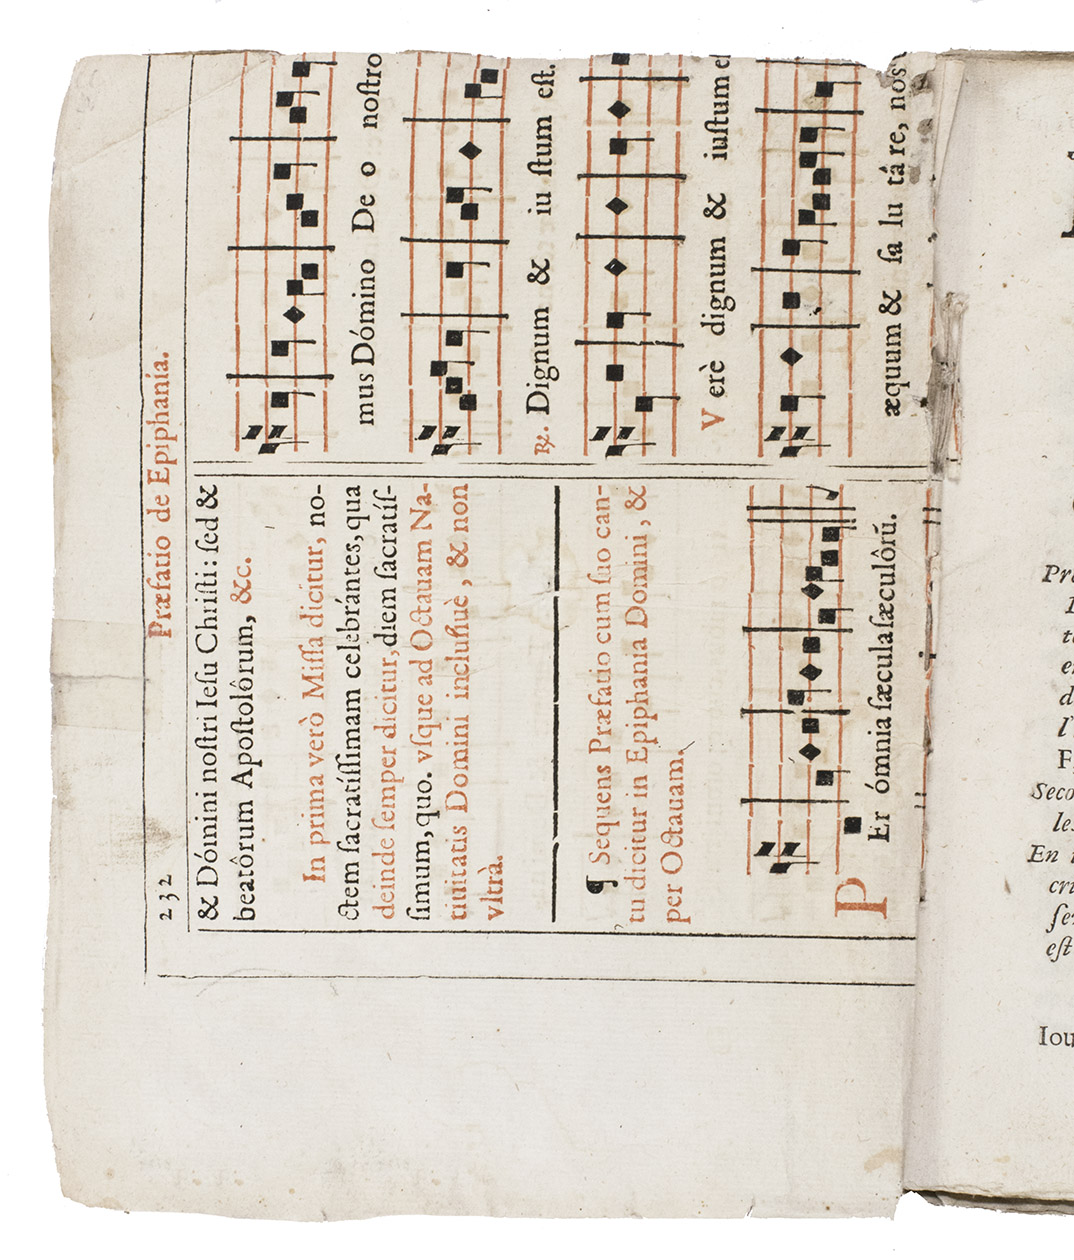 232
Præfatio de Epiphania.
& Dómini nostri Iesu Christi: sed &
beatôrum Apostolôrum, &c.
In prima verò Missa dicitur, no-
ctem sacratíssimam celebrántes, qua
deinde semper dicitur, diem sacratís-
simum, quo. vsque ad Octauam Na-
tiuitatis Domini inclusiuè, & non
vltrà.
¶ Sequens Præfatio cum suo can-
tu dicitur in Epiphania Domini, &
per Octauam.
PEr ómnia sæcula sæculôrũ.
mus Dómino De o nostro
℟. Dignum & iu stum est.
Verè dignum & iustum
æquum & sa lu tá re, nos
En
est